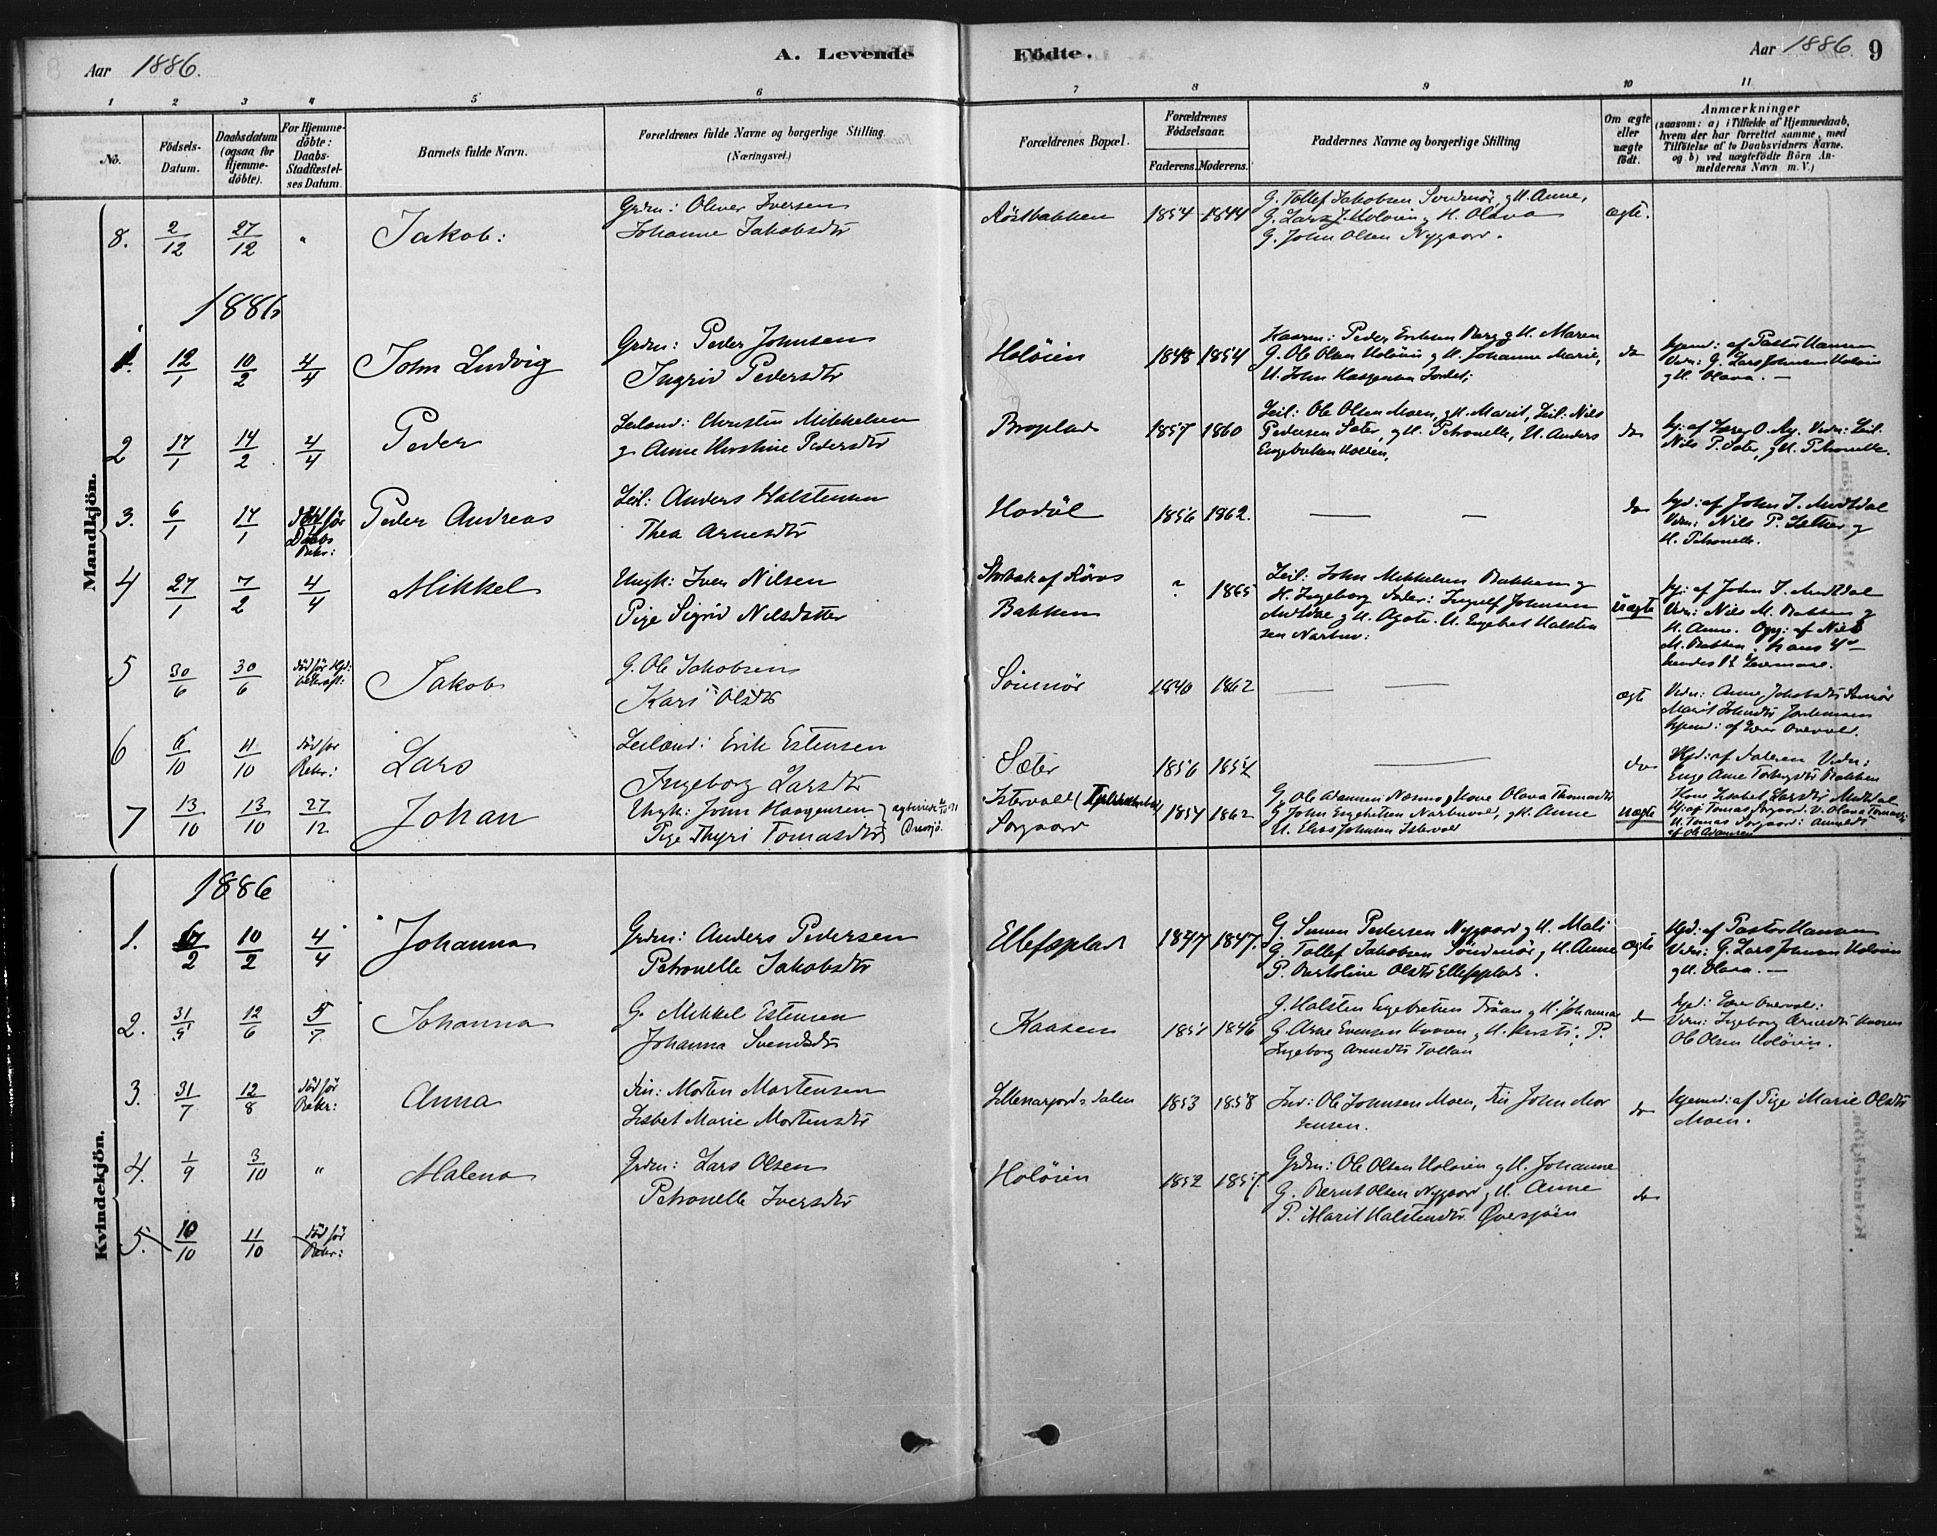 Aar 1886.
A. Levende
Födte.
Aar 1886
9
1 2 3 4 5 6 7 8 9 10 11
No.
Födsels-
Datum.
Daabsdatum
(ogsaa for
Hjemme-
döbte).
For Hjemme-
döbte:
Daabs-
Stadfæstel-
ses Datum.
Barnets fulde Navn.
Forældrenes fulde Navne og borgerlige Stilling
(Næringsvei.)
Forældrenes Bopæl.
Forældrenes
Födselsaar.
Faderens. Moderens.
Faddernes Navne og borgerlige Stilling
Om ægte
eller
uægte
födt.
Anmærkninger
(saasom: a) i Tilfælde af Hjemmedaab,
hvem der har forrettet samme, med
Tilföielse af to Daabsvidners Navne.
og b) ved uægtefödte Börn An-
melderens Navn m. V.)
Mandkjön.
8. 2/12 27/12 " Jakob:
Grdm: Oliver Iversen
Johanne Jakobsdtr
Röstbakken 1854 1844
G. Tollef Jakobsen Söndmör, g H. Anne,
G. Lars J. Holöien g H. Olava
G. John Olsen Nygaard.
ægte.
1886
1. 12/1 10/2 4/4 John Ludvig
Grdm: Peder Johnsen
Ingrid Pedersdtr
Holöien 1848 1854
Kaarm: Peder Eriksen Berg g H. Maren
G. Ole Olsen Holöien g H. Johanne Marie,
U. John Jordet;
do
Hjemd: af Pastor Hansen
Vidn: G. Lars Johnsen Holöien
g H. Olava. —
2 17/1 14/2 4/4 Peder
Leiland: Christen Mikkelsen
g Anne Kirstine Pedersdtr
Broplads 1857 1860
Leil: Ole Olsen Moen, g H. Marit, Leil: Nils
Pedersen Sæter, g H. Petronelle, U. Anders
Engebretsen
do
Nils P. Sæter, g H. Petronelle.
3. 6/1 17/1 död för
Daabs
Bekr:
Peder Andreas
Leil: Anders Halstensen
Thea Arnesdtr
Hodöl 1856 1862.
— —
do
Hjd: af John I. Midtdal
Vidn: Nils P. Sæther g
H. Petronelle.
4 27/1 7/2 4/4 Mikkel
Ungk: Iver Nilsen
Pige Sigrid Nilsdatter
af Röros
Bakken
? 1865
Leil: John Mikkelsen Bakken g
H. Ingeborg Inger: Ingulf Johnsen
g H. Agate. U. Engebret Halsten
sen Narbu:
uægte
Hj: af John I. Midtdal
Vidn: Nils M. Bakken g
H. Anne. Opg: af Nils
M. Bakken.
5 30/6 30/6 död för Hjd:
bekræft:
Jakob
G. Ole Jakobsen
Kari Olsdtr
Söndmör 1840 1862
— —
ægte
Vidn: Anne Jakobsdtr
Marit Johnsdtr
Hjemd: af
6 6/10 11/10 död for
Bekr:
Lars
Leiland: Erik Estensen
Ingeborg Larsdtr
Sæter 1856 1854
—
do
Hjd: af Faderen Vidn:
Enge Anne Bakken
Kone Lisbet Larsdtr Midtdal
7 13/10 13/10 27/12 Johan
Ungk: John Haagensen
Pige Thyri Tomasdtr
Istervold
Sorgaard
1854 1862
G. Ole Adamsen Næsmo g Kone Olava Thomasdtr
G John Engebretsen Narbuvol, g H. Anne
U. Elias Johnsen Istervol
uægte
af Ole Adamsen
Kvindekjön.
1886
1. /2 10/2 4/4 Johanna
Grdm: Anders Pedersen
Petronelle Jakobsdtr
Ellefsplads 1847 1847.
G. Simen Pedersen Nygaard g H. Mali
G. Tollef Jakobsen Söndmör, g H. Anne
P. Olsdtr Ellefsplads.
ægte
Hjd: af Pastor Hansen
Vidn: G. Lars Johnsen Holöien
g H. Olava. —
2. 31/5 12/6 5/7 Johanna
G. Mikkel Estensen
Johanna Svendsdtr
Kaasen 1851 1846
G. Halsten Engebretsen Tröan g H. Johanna
G. Arne Evensen g H. Kirsti; P.
Ingeborg Arnesdtr Tollan
do
Vidn: Ingeborg Arnesdtr
Ole Olsen Holöien.
3. 31/7 12/8 död för
Bekr:
Anna
Fin: Morten Mortensen
Lisbet Marie Mortensdtr
Lillenarjords dalen 1853 1858
Ind: Ole Johnsen Moen, Fin John Mor
tensen.
do
Hjemd: af Pige Marie Olsdtr
Moen.
4. 1/9 3/10 " Malena
Grdm: Lars Olsen
Petronelle Iversdtr
Holöien 1852 1857.
Grdm: Ole Olsen Holöien g H. Johanne
G. Bernt Olsen Nygaard g H. Anne
P. Marit Halstensdtr Översjöen
do
5. 10/10 11/10 död för
Bekr: